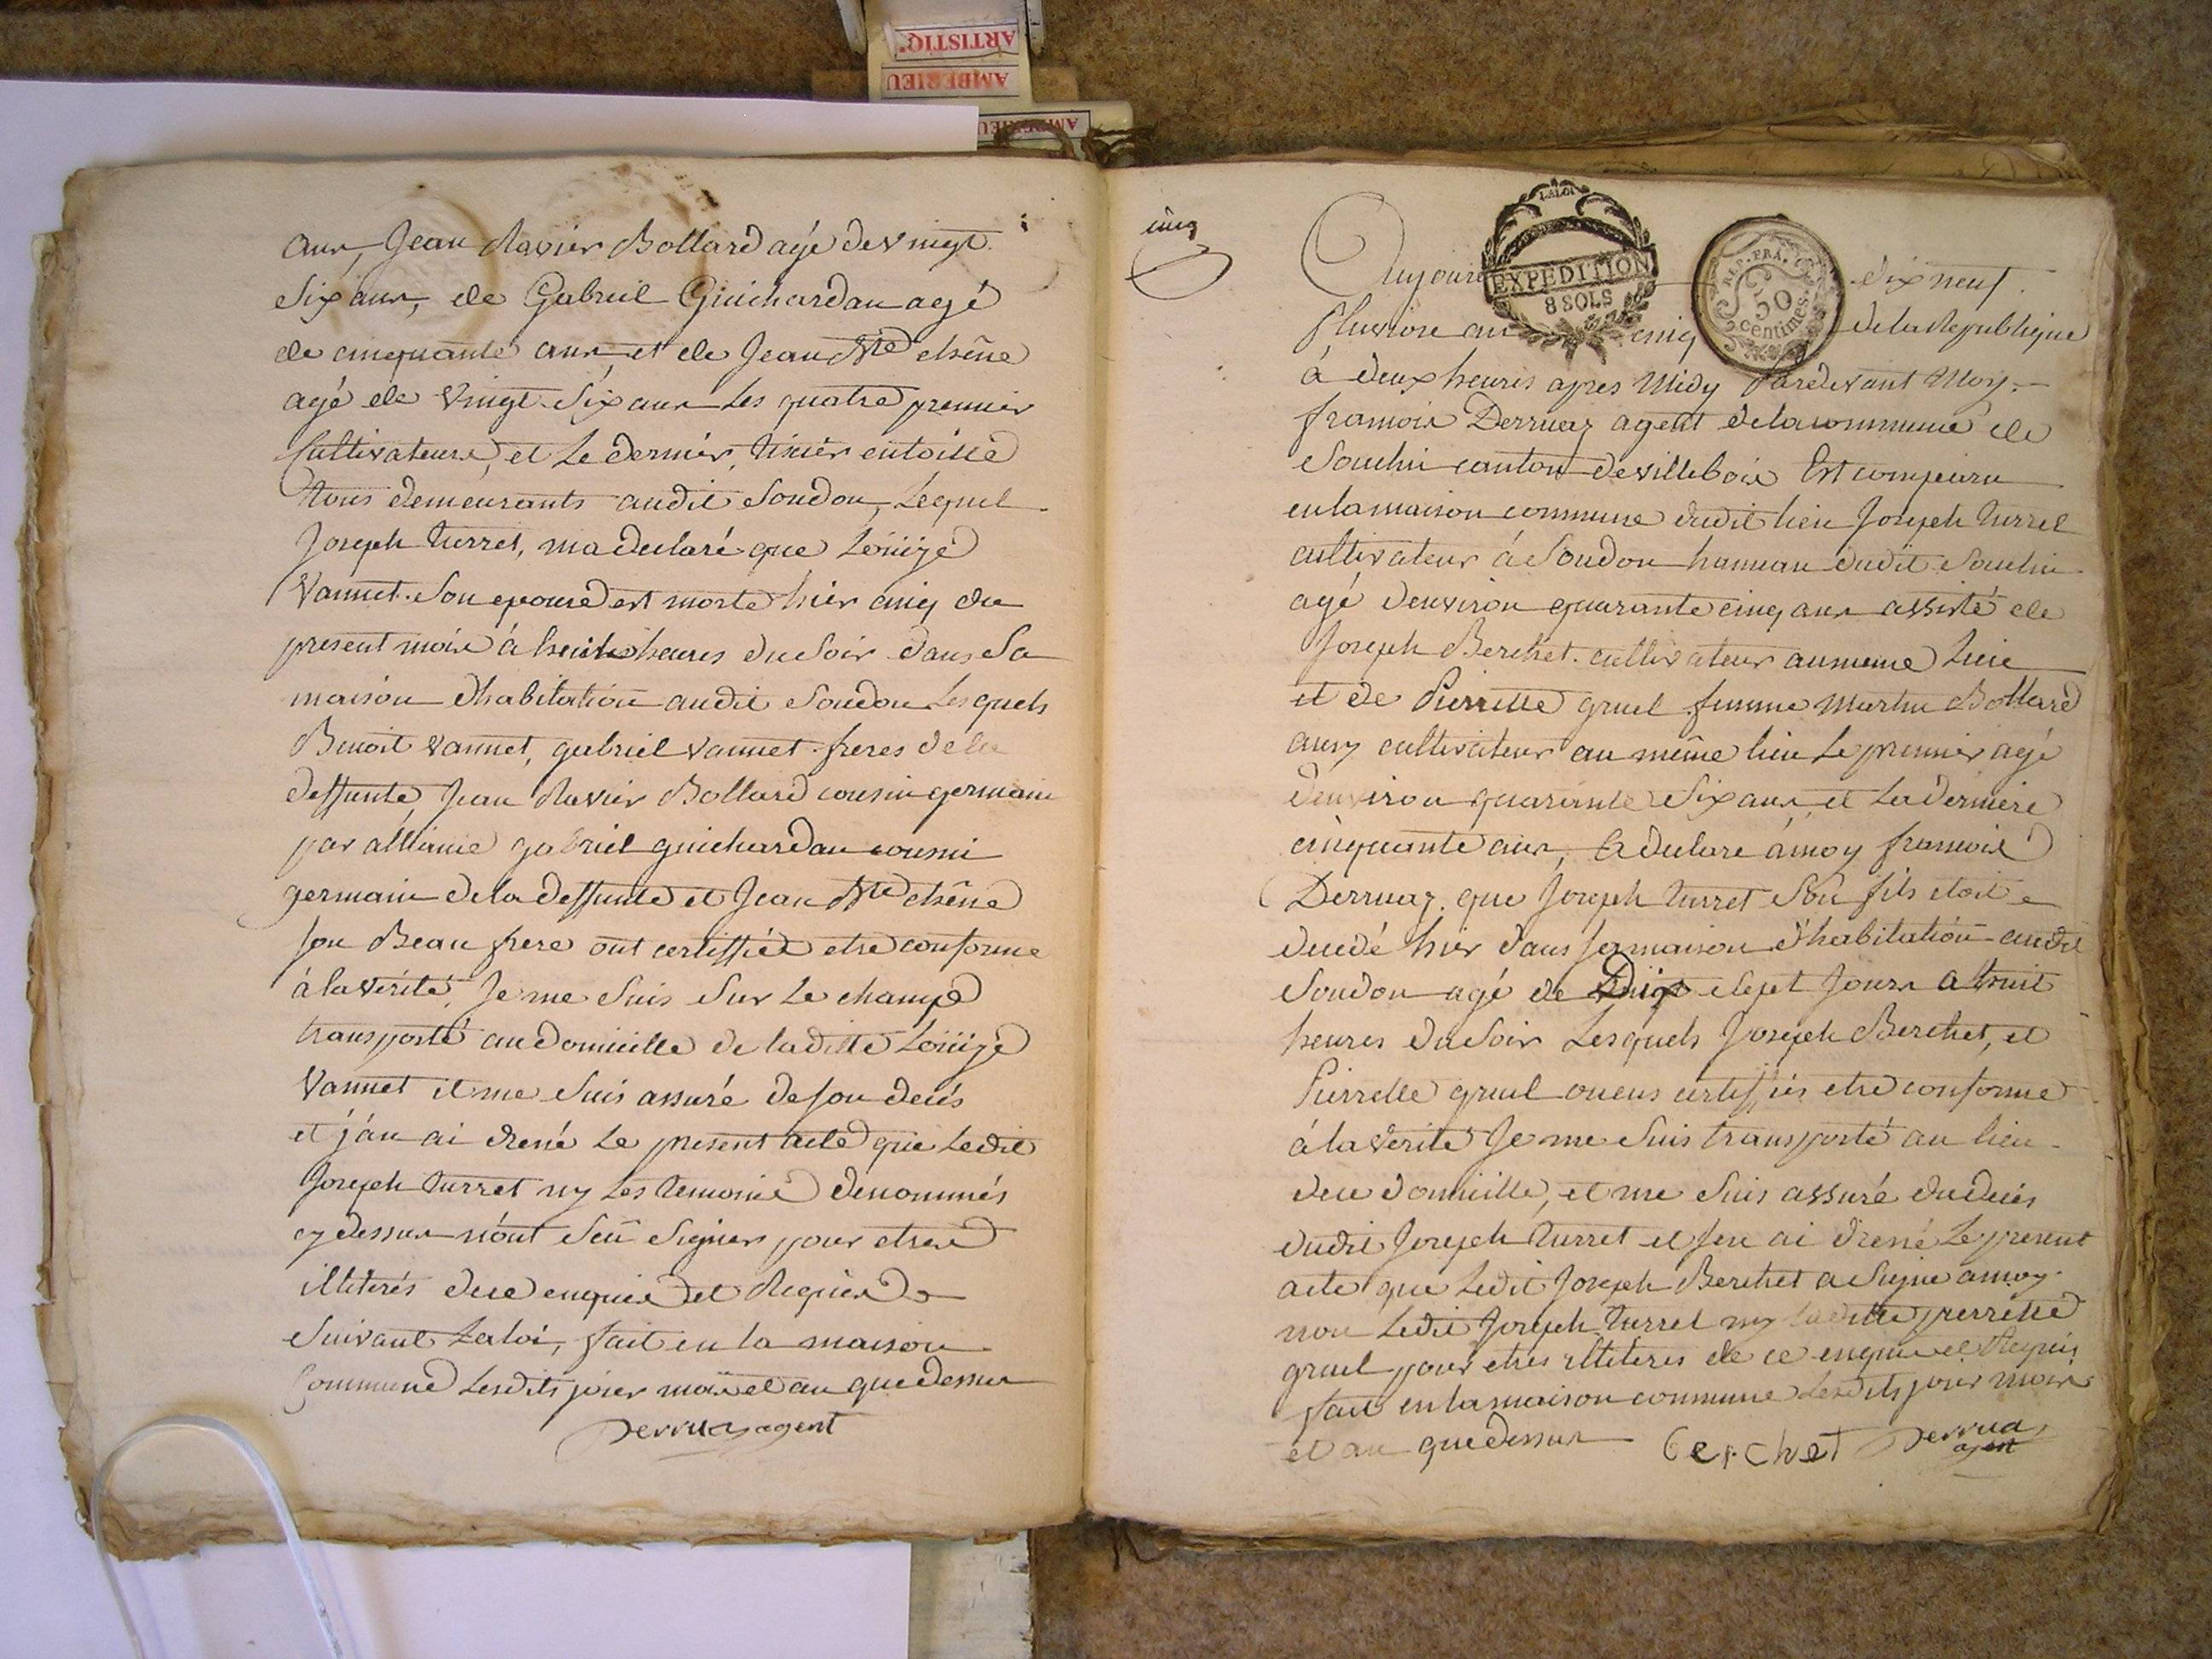 ARTISTIQ
AMBERIEU
AMBERIEU
ans, Jean Xavier Bollard agé de vingt
six ans, de Gabriel Guichardan agé
de cinquante ans, et de Jean Bte chêne
agé de vingt six ans Les quatre premier
Cultivateurs, et Le dernier, tixier en toille
tous demeurants audit Soudon, Lequel
Joseph turret, ma declaré que Loüize
Vannet son epouse est morte hier cinq du
present mois à heuit heures du soir dans sa
maison dhabitation audit Soudon Lesquels
Benoit vannet, gabriel vannet freres de la
deffunte, Jean Xavier Bollard cousin germain
par alliance gabriel guichardan cousin
germain de la deffunte et Jean Bte chêne
son Beau frere ont certiffiée etre conforme
à la vérité, Je me suis sur Le champ
transporté au domicille de laditte Loüize
Vannet et me suis assuré de son decés
et j'an ai dréné Le present acte que Ledit
Joseph turret ny Les temoins denommés
cy dessus n'ont seû signer pour etre
illiterés de ce enquis et Requis
suivant La loi, fait en la maison
Commune Lesdits jour mois et an que dessus
Derruaz agent
cinq
LA LOI
EXPEDITION
8 SOLS
REP. FRA.
50
centimes.
Aujourd dix neuf
pluviose an cinq de la Republique
à deux heures apres Midy Pardevant Moy
francois Derruaz agent de la commune de
Souclin canton de villebois Est comparu
en la maison commune dudit lieu Joseph turret
cultivateur à Soudon hameau dudit Souclin
agé d'environ quarante cinq ans assisté de
Joseph Berchet cultivateur au meme lieu
et de Pierrette gruel femme Martin Bollard
aussy cultivateur au même lieu Le premier agé
d'environ quarante six ans et La derniere
cinquante ans, a declaré à moy francois
Derruaz que Joseph turret son fils etoit
decedé hier dans sa maison d'habitation audit
Soudon agé de Dix sept Jours a huit
heures du soir Lesquels Joseph Berchet, et
Pierrette gruel certiffiés etre conforme
à la verité Je me suis transporté au lieu
de ce domicille, et me suis assuré du decés
dudit Joseph turret et J'en ai dréné Le present
acte que Ledit Joseph Berchet a signé a moy
non Ledit Joseph turret ny laditte pierrette
gruel pour etres illiteres de ce enquis et Requis
fait en la maison commune Lesdits jour mois
et an que dessus Berchet Derruaz
agent